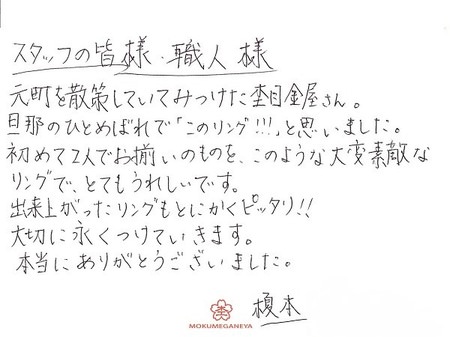 スタッフの皆様・職人様
元町を散策していてみつけた杢目金屋さん。
旦那のひとめぼれで「このリング!!!」と思いました。
初めて2人でお揃いのものを、このような大変素敵な
リングで、とてもうれしいです。
出来上がったリングもとにかくピッタリ!!
大切に永くつけていきます。
本当にありがとうございました。
榎本
MOKUMEGANEYA